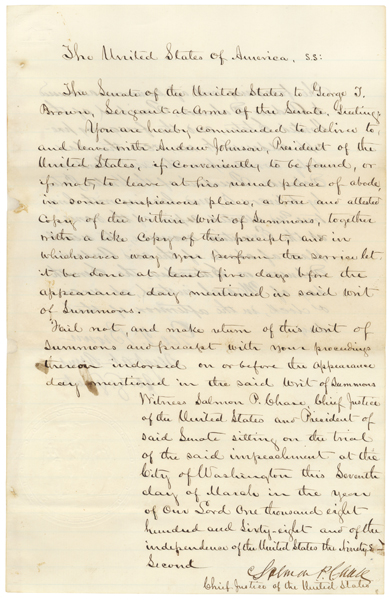 The United States of America, SS:
The Senate of the United States to George T.
Brown, Sergeant-at-Arms of the Senate, Greeting
You are hereby commanded to deliver to
and leave with Andrew Johnson, President of the
United States, if conveniently to be found, or
if not, to leave at his usual place of abode
in some conspicuous place, a true and attested
Copy of the within Writ of Summons, together
with a like Copy of this precept, and in
whichsoever way you perform the service let
it be done at least five days before the
appearance day mentioned in said Writ
of Summons.
Fail not, and make return of this Writ of
Summons and precept with your proceedings
thereon indorsed on or before the appearance
day mentioned in the said Writ of Summons
Witness Salmon P. Chase, Chief Justice
of the United States and President of
said Senate sitting on the trial
of the said impeachment at the
City of Washington this Seventh
day of March in the year
of Our Lord One thousand eight
hundred and Sixty-eight and of the
independence of the United States the Ninety
Second
Salmon P. Chase
Chief Justice of the United States